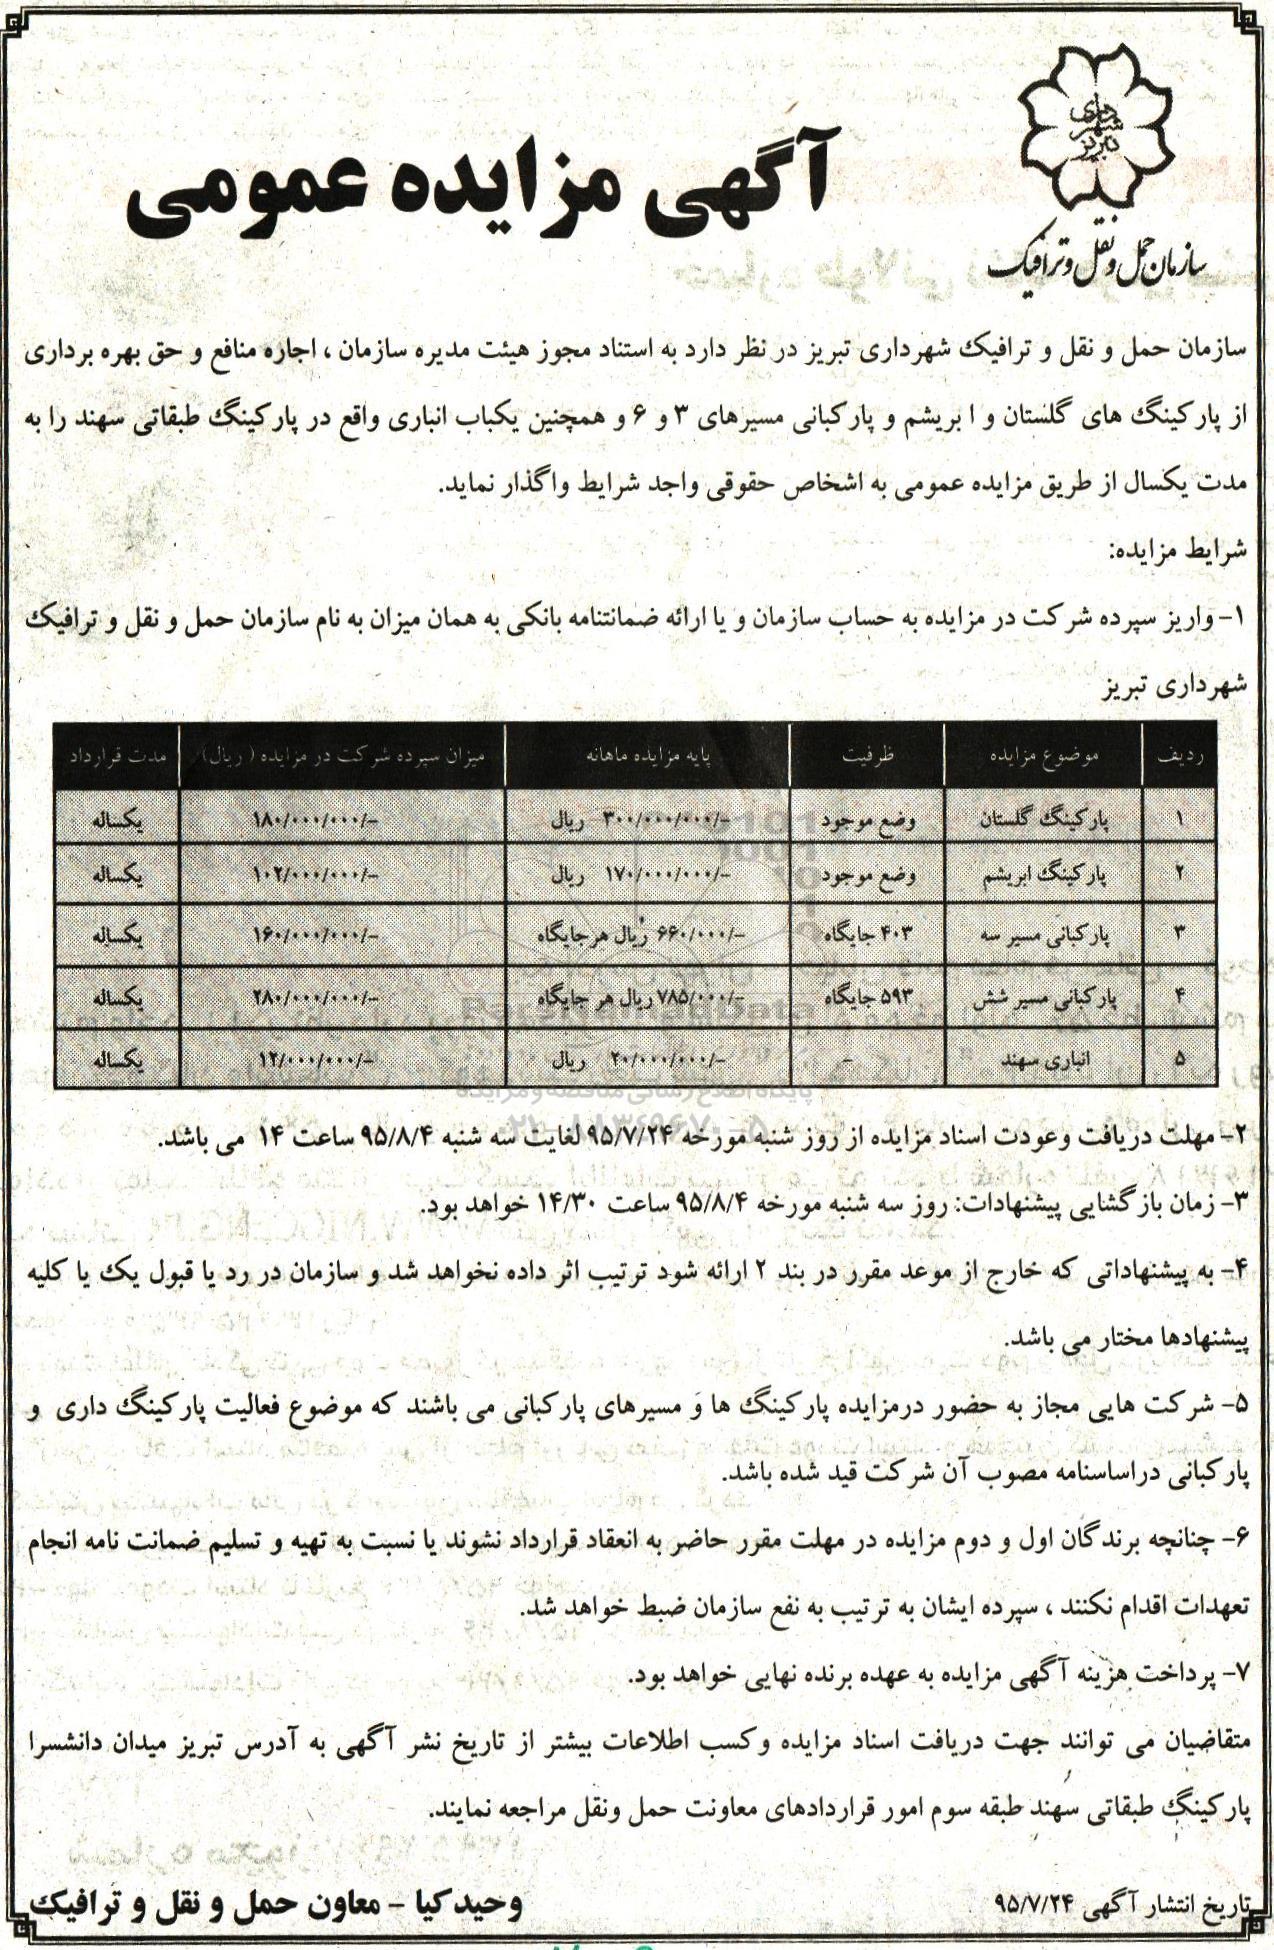 شهرداری
تبریز
سازمان حمل و نقل و ترافیک
آگهی مزایده عمومی
سازمان حمل و نقل و ترافیک شهرداری تبریز در نظر دارد به استناد مجوز هیئت مدیره سازمان ، اجاره منافع و حق بهره برداری
از پارکینگ های گلستان و ابریشم و پارکبانی مسیرهای ۳ و ۶ و همچنین یکباب انباری واقع در پارکینگ طبقاتی سهند را به
مدت یکسال از طریق مزایده عمومی به اشخاص حقوقی واجد شرایط واگذار نماید.
شرایط مزایده:
۱- واریز سپرده شرکت در مزایده به حساب سازمان و یا ارائه ضمانتنامه بانکی به همان میزان به نام سازمان حمل و نقل و ترافیک
شهرداری تبریز
ردیف موضوع مزایده ظرفیت پایه مزایده ماهانه میزان سپرده شرکت در مزایده ( ریال) مدت قرارداد
۱ پارکینگ گلستان وضع موجود ۳۰۰/۰۰۰/۰۰۰/- ریال ۱۸۰/۰۰۰/۰۰۰/- یکساله
۲ پارکینگ ابریشم وضع موجود ۱۷۰/۰۰۰/۰۰۰/- ریال ۱۰۲/۰۰۰/۰۰۰/- یکساله
۳ پارکبانی مسیر سه ۴۰۳ جایگاه ۶۶۰/۰۰۰/- ریال هر جایگاه ۱۶۰/۰۰۰/۰۰۰/- یکساله
۴ پارکبانی مسیر شش ۵۹۳ جایگاه ۷۸۵/۰۰۰/- ریال هر جایگاه ۲۸۰/۰۰۰/۰۰۰/- یکساله
۵ انباری سهند - ۲۰/۰۰۰/۰۰۰/- ریال ۱۲/۰۰۰/۰۰۰/- یکساله
ParsNamadData
پایگاه اطلاع رسانی مناقصه و مزایده
۰۲۱-۸۸۳۴۹۶۷۰-۵
۲- مهلت دریافت وعودت اسناد مزایده از روز شنبه مورخه ۹۵/۷/۲۴ لغایت سه شنبه ۹۵/۸/۴ ساعت ۱۴ می باشد.
۳- زمان بازگشایی پیشنهادات: روز سه شنبه مورخه ۹۵/۸/۴ ساعت ۱۴/۳۰ خواهد بود.
۴- به پیشنهاداتی که خارج از موعد مقرر در بند ۲ ارائه شود ترتیب اثر داده نخواهد شد و سازمان در رد یا قبول یک یا کلیه
پیشنهادها مختار می باشد.
۵- شرکت هایی مجاز به حضور درمزایده پارکینگ ها و مسیرهای پارکبانی می باشند که موضوع فعالیت پارکینگ داری و
پارکبانی دراساسنامه مصوب آن شرکت قید شده باشد.
۶- چنانچه برندگان اول و دوم مزایده در مهلت مقرر حاضر به انعقاد قرارداد نشوند یا نسبت به تهیه و تسلیم ضمانت نامه انجام
تعهدات اقدام نکنند ، سپرده ایشان به ترتیب به نفع سازمان ضبط خواهد شد.
۷- پرداخت هزینه آگهی مزایده به عهده برنده نهایی خواهد بود.
متقاضیان می توانند جهت دریافت اسناد مزایده وکسب اطلاعات بیشتر از تاریخ نشر آگهی به آدرس تبریز میدان دانشسرا
پارکینگ طبقاتی سهند طبقه سوم امور قراردادهای معاونت حمل ونقل مراجعه نمایند.
تاریخ انتشار آگهی ۹۵/۷/۲۴
وحید کیا - معاون حمل و نقل و ترافیک